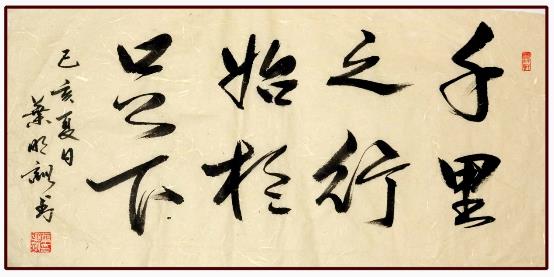 千里
之行
始於
足下
己亥夏日
葉明訓书